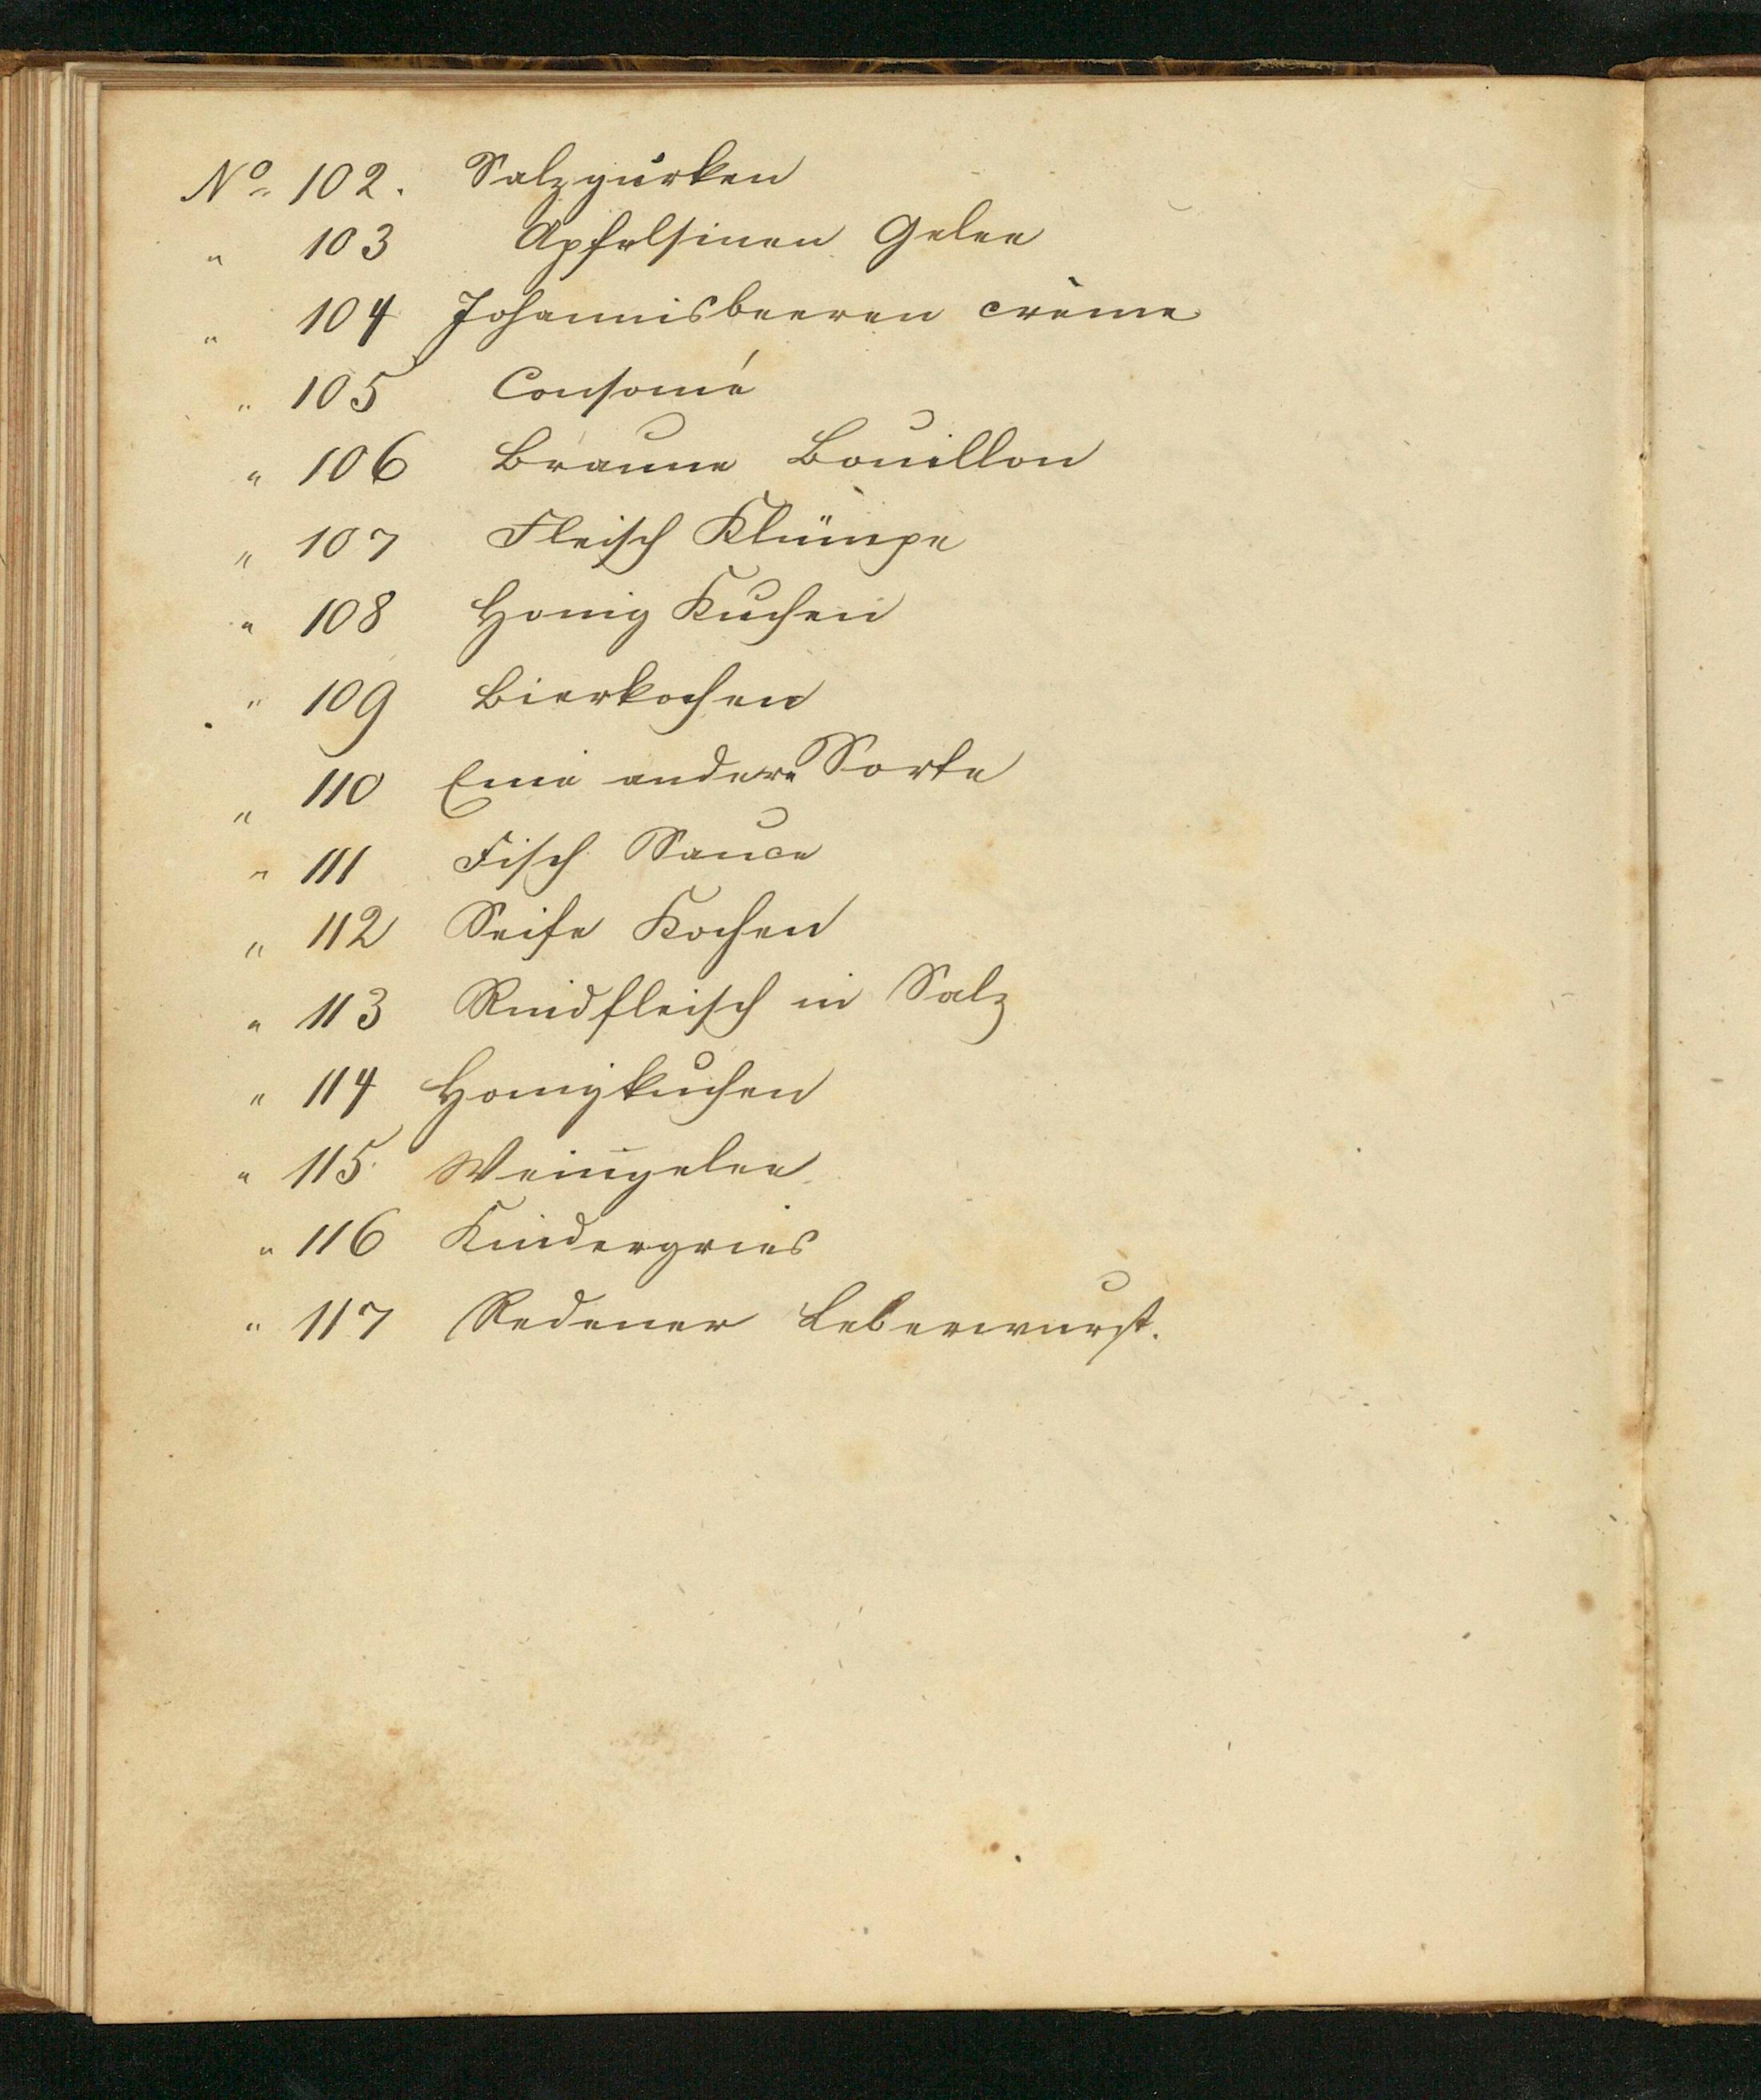 No. 102. Salzgurken
" 103 Apfelsinen Gelee
" 104 Johannisbeeren crème
" 105 Consomé
" 106 Braune Bouillon
" 107 Fleisch Klümpe
" 108 Honig Kuchen
" 109 Bierkochen
" 110 Eine andere Sorte
" 111 Fisch Sauce
" 112 Seife Kochen
" 113 Rindfleisch in Salz
" 114 Honigkuchen
" 115 Weingelee
" 116 Kindergries
" 117 Redener Leberwurst.